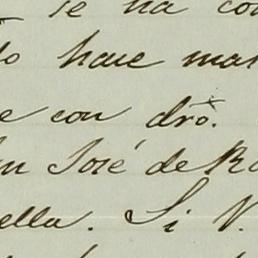 se ha co
to hace mas
e con dro.
n José de Ro
ella. Si V.